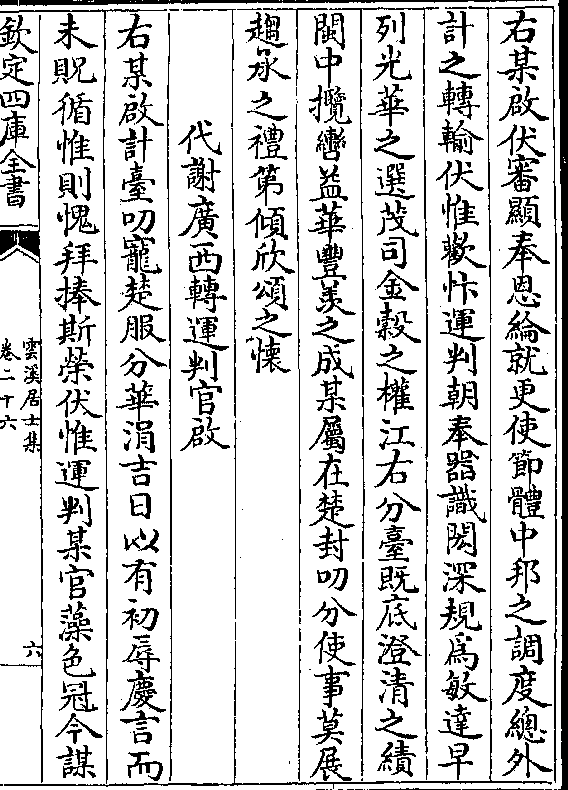 右某啟伏審顯奉恩綸就更使節體中邦之調度總外
計之轉輸伏惟歡忭運判朝奉器識閎深規爲敏達早
列光華之選茂司金榖之權江右分臺既底澄清之績
閩中攬轡益華豐羡之成某屬在楚封叨分使事莫展
趨承之禮第傾欣頌之懷
代謝廣西轉運判官啟
右某啟計臺叨寵楚服分華涓吉日以有初辱慶言而
未貺循惟則愧拜捧斯榮伏惟運判某官藻色冠今謀
欽定四庫全書
雲溪居士集
卷二十六
六